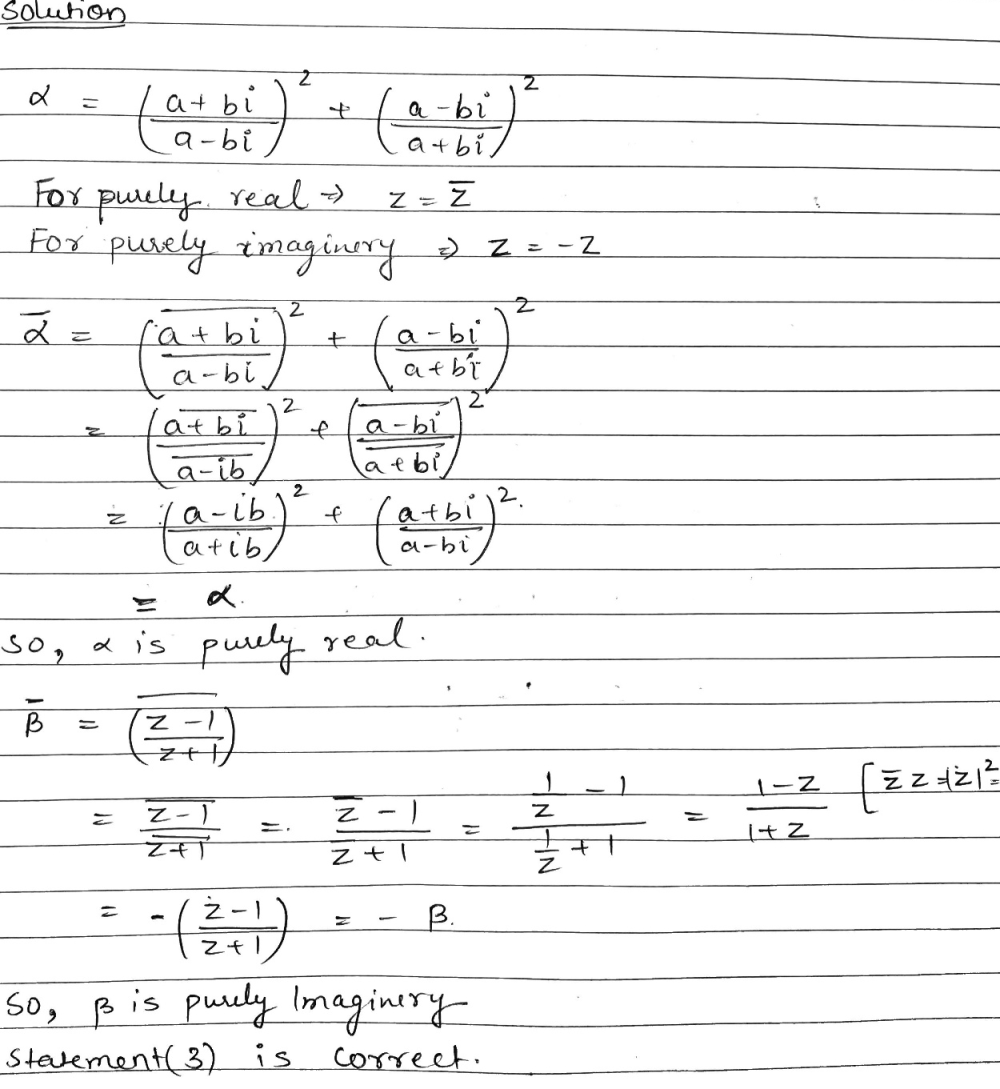 Solution
α = ((a + bi)/(a - bi))² + ((a - bi)/(a + bi))²
For purely real ⇒ z = z̅
For purely imaginery ⇒ z = -z
α̅ = \overline{((a + bi)/(a - bi))}² + ((a - bi)/(a + bi))²
= (\overline{a + bi}/\overline{a - ib})² + (\overline{a - bi}/\overline{a + bi})²
= ((a - ib)/(a + ib))² + ((a + bi)/(a - bi))².
= α.
So, α is purely real.
β̅ = \overline{((z - 1)/(z + 1))}
= \overline{z - 1}/\overline{z + 1} = (z̅ - 1)/(z̅ + 1) = (1/z - 1)/(1/z + 1) = (1 - z)/(1 + z) [z̅ z = |z|² =
= -((z - 1)/(z + 1)) = - β.
So, β is purely Imaginery
Statement(3) is correct.